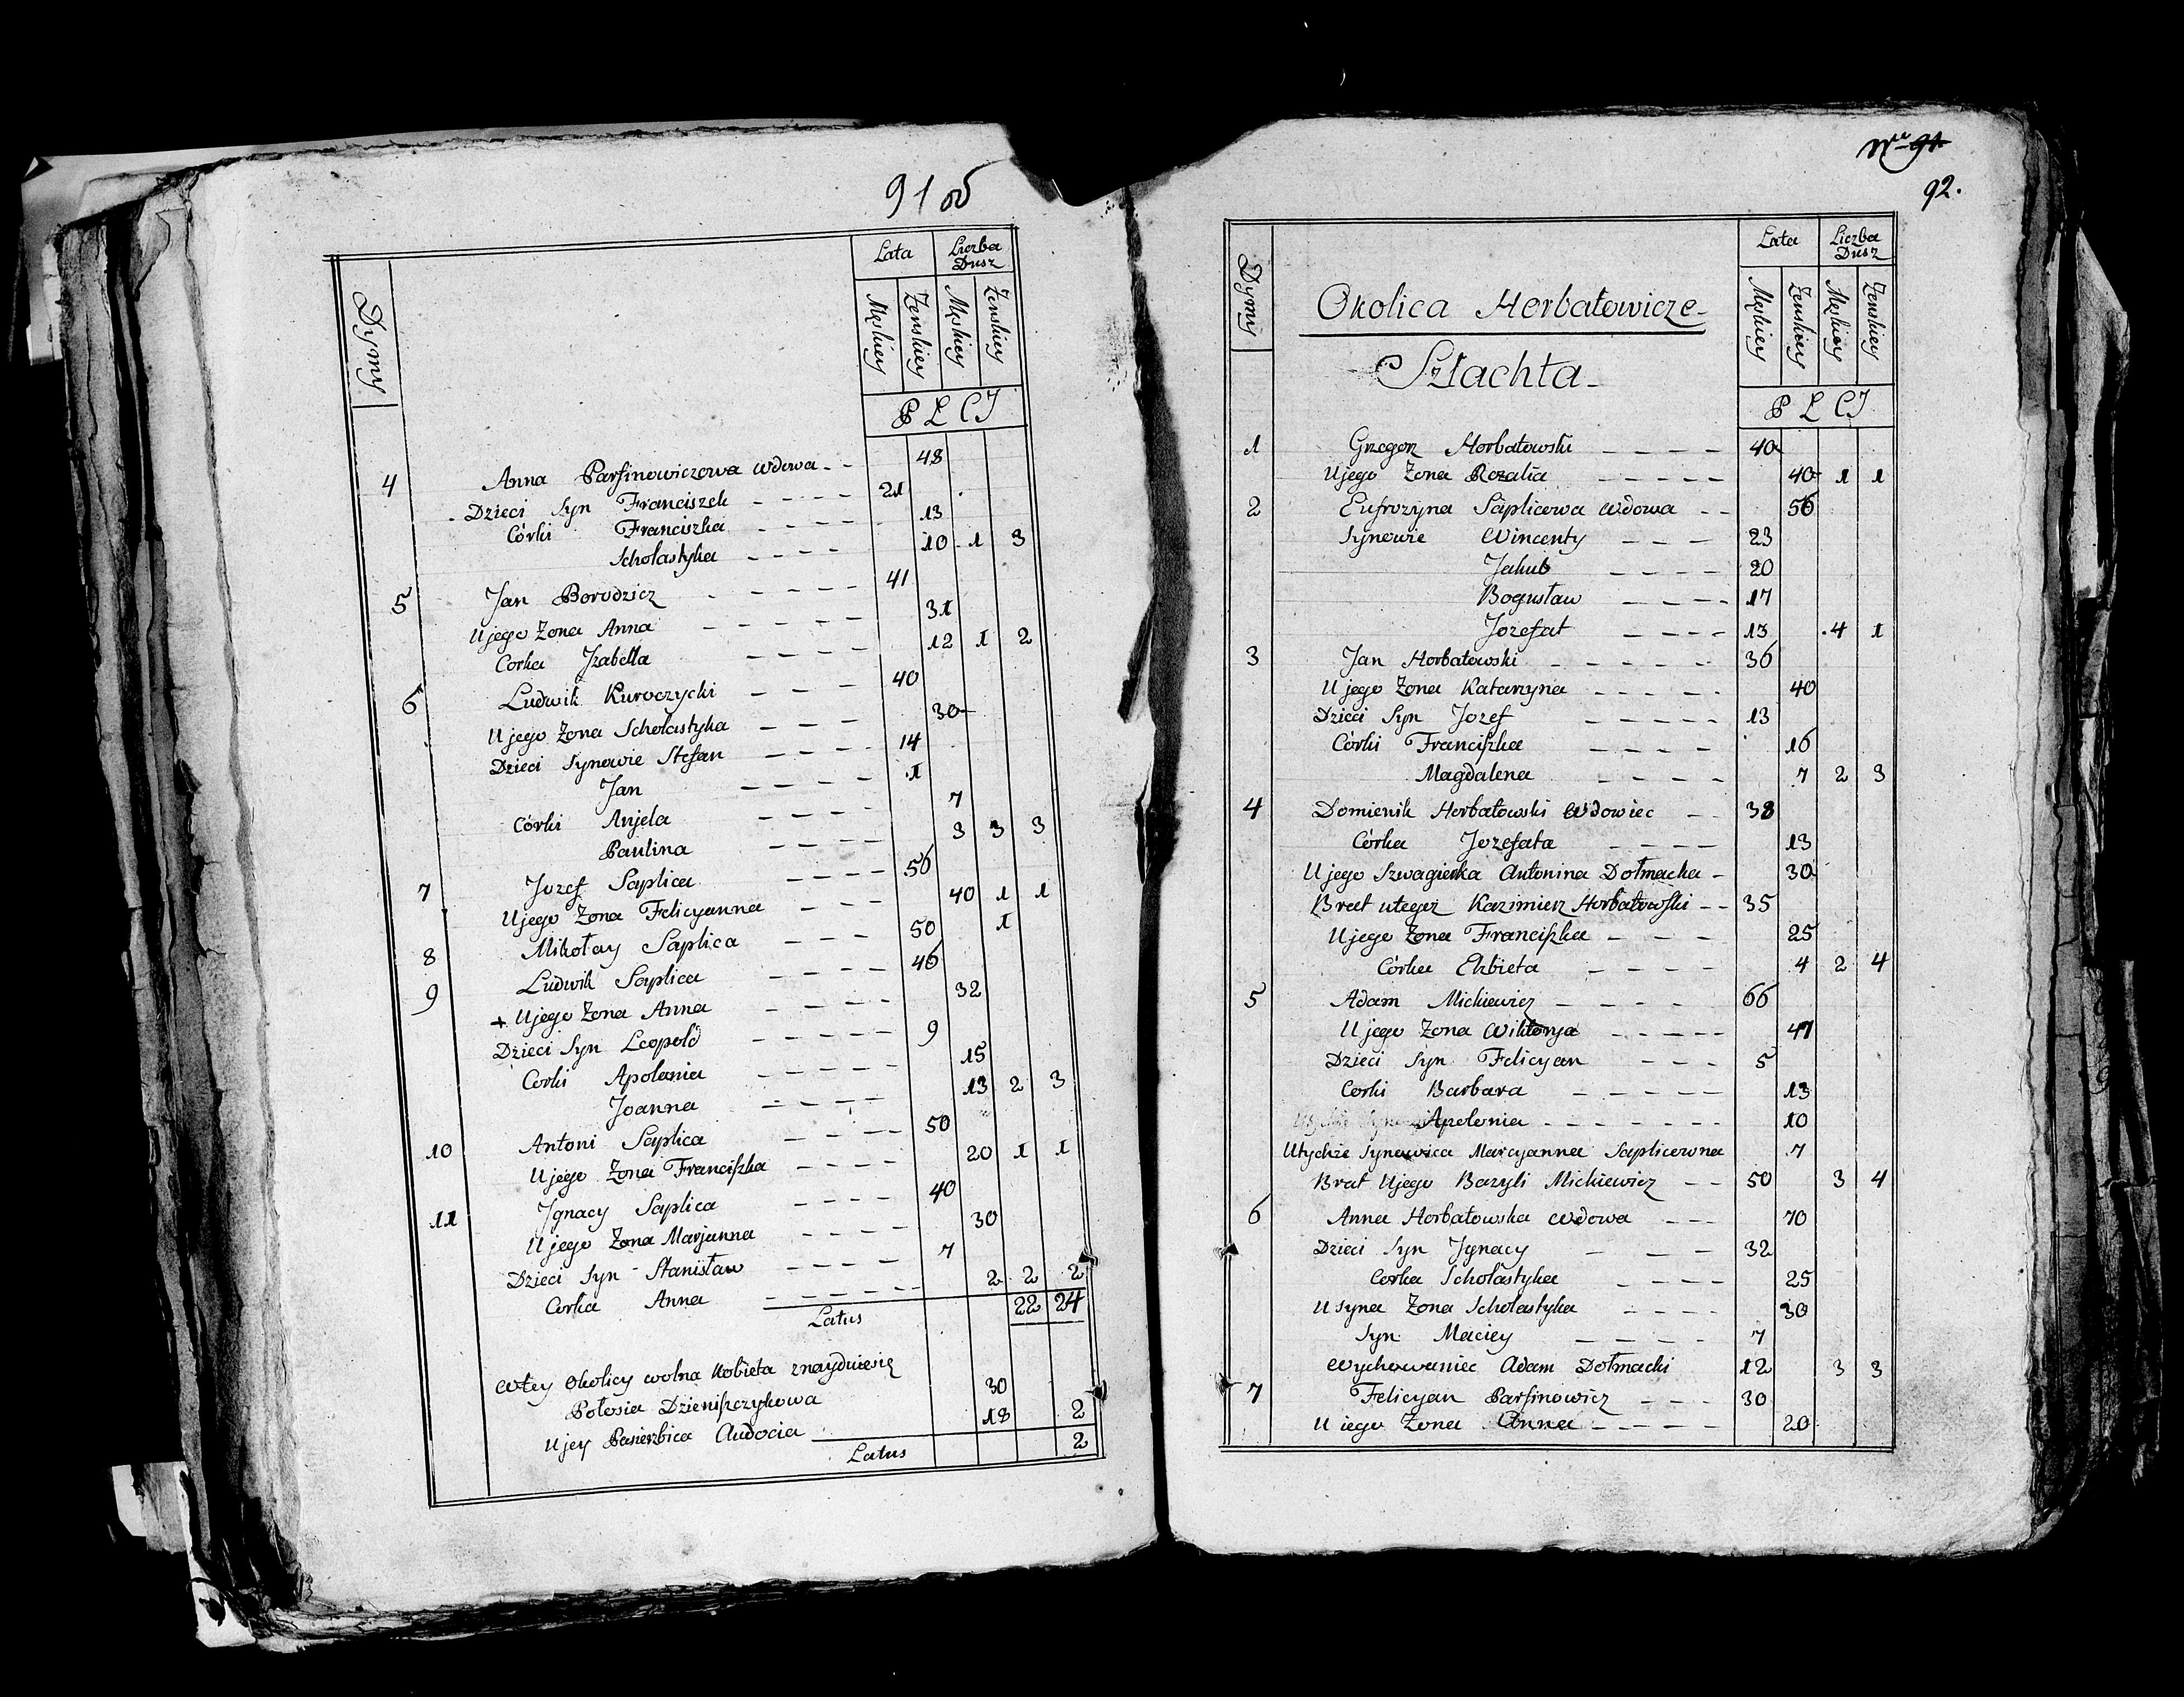 91 об
Dymy
Lata
Liczba Dusz
Męskiey
Żenskiey
Męskiey
Żenskiey
P Ł C I
4 Anna Parfinowiczowa wdowa - - 48
Dzieci Syn Franciszek - - - - 21
Córki Franciszka - - - - 13
Scholastyka - - - - 10 1 3
5 Jan Borodzicz - - - - - 41
Ujego Żona Anna - - - - - 31
Corka Jzabella - - - - 12 1 2
6 Ludwik Kuroczycki - - - - 40
Ujego Żona Scholastyka - - - 30
Dzieci Synowie Stefan - - - - 14
Jan - - - - 1
Córki Anjela - - - - 7
Paulina - - - - 3 3 3
7 Jozef Saplica - - - - 56
Ujego Żona Felicyanna - - - 40 1 1
8 Mikołay Saplica - - - 50 1
9 Ludwik Saplica - - - - 46
+ Ujego Żona Anna - - - - 32
Dzieci Syn Leopold - - - - - 9
Corki Apolonia - - - - - 15
Joanna - - - - 13 2 3
10 Antoni Saplica - - - - 50
Ujego Żona Franciszka - - - - 20 1 1
11 Jgnacy Saplica - - - - 40
Ujego Żona Marjanna - - - - 30
Dzieci Syn Stanisław - - - - 7
Corka Anna - - - - - - 2 2 2
Latus 22 24
wtey Okolicy wolna Kobieta znayduiesię
Połosia Dzieniszczykowa 30
Ujey Pasierzbica Audocia 18 2
Latus 2
Nro 91
92.
Dymy
Okolica Horbatowicze
Szlachta
Lata
Liczba Dusz
Męskiey
Żenskiey
Męskiey
Żenskiey
P Ł C I
1 Grzegorz Horbatowski - - - - 40
Ujego Żona Rozalia - - - - - 40 1 1
2 Eufrozyna Saplicowa wdowa - - 56
Synowie Wincenty - - - 23
Jakub - - - - 20
Bogusław - - - - 17
Jozefat - - - - 13 4 1
3 Jan Horbatowski - - - - - - 36
Ujego Żona Katarzyna - - - - - 40
Dzieci Syn Jozef - - - - - 13
Córki Franciszka - - - - 16
Magdalena - - - - 7 2 3
4 Domienik Horbatowski wdowiec - - 38
Córka Jozefata - - - - 13
Ujego Szwagierka Antonina Dołmacka - 30
Brat utegoż Kazimierz Horbatowski - - 35
Ujego Żona Franciszka - - - 25
Córka Elzbieta - - - - 4 2 4
5 Adam Mickiewicz - - - - 66
Ujego Żona Wiktorya - - - - - 47
Dzieci Syn Felicyan - - - 5
Corki Barbara - - - - - 13
Apolonia - - - - - - - 10
Utychże Synowica Maryanna Saplicowna 7
Brat Ujego Bazyli Mickiewicz - - 50 3 4
6 Anna Horbatowska wdowa - - - 70
Dzieci Syn Jgnacy - - - 32
Corka Scholastyka - - - - 25
Usyna Żona Scholastyka - - - - 30
Syn Maciey - - - - 7
Wychowaniec Adam Dołmacki 12 3 3
7 Felicyan Parfinowicz - - - 30
Uiego Żona Anna - - - - - 20